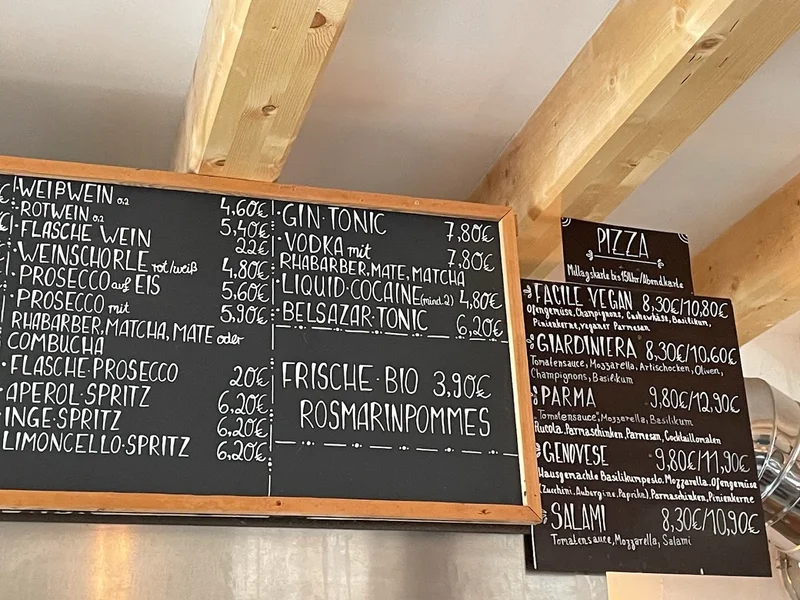 WEIßWEIN 0,2 4,60€
ROTWEIN 0,2 5,40€
FLASCHE WEIN 22€
WEINSCHORLE rot/weiß 4,80€
PROSECCO auf EIS 5,60€
PROSECCO mit 5,90€
RHABARBER, MATCHA, MATE oder
COMBUCHA
FLASCHE·PROSECCO 20€
APEROL·SPRITZ 6,20€
INGE·SPRITZ 6,20€
LIMONCELLO·SPRITZ 6,20€
GIN·TONIC 7,80€
VODKA mit 7,80€
RHABARBER, MATE, MATCHA
LIQUID·COCAINE (mind.2) 4,80€
BELSAZAR·TONIC 6,20€
FRISCHE·BIO 3,90€
ROSMARINPOMMES
PIZZA
Mittagskarte bis 15Uhr/Abendkarte
FACILE VEGAN 8,30€/10,80€
Ofengemüse, Champignons, Cashewkäse, Basilikum,
Pinienkerne, veganer Parmesan
GIARDINIERA 8,30€/10,60€
Tomatensauce, Mozzarella, Artischocken, Oliven,
Champignons, Basilikum
PARMA 9,80€/12,90€
Tomatensauce, Mozzarella, Basilikum
Rucola, Parmaschinken, Parmesan, Cocktailtomaten
GENOVESE 9,80€/11,90€
Hausgemachte Basilikumpesto, Mozzarella, Ofengemüse
(Zucchini, Aubergine, Paprika), Parmaschinken, Pinienkerne
SALAMI 8,30€/10,90€
Tomatensauce, Mozzarella, Salami